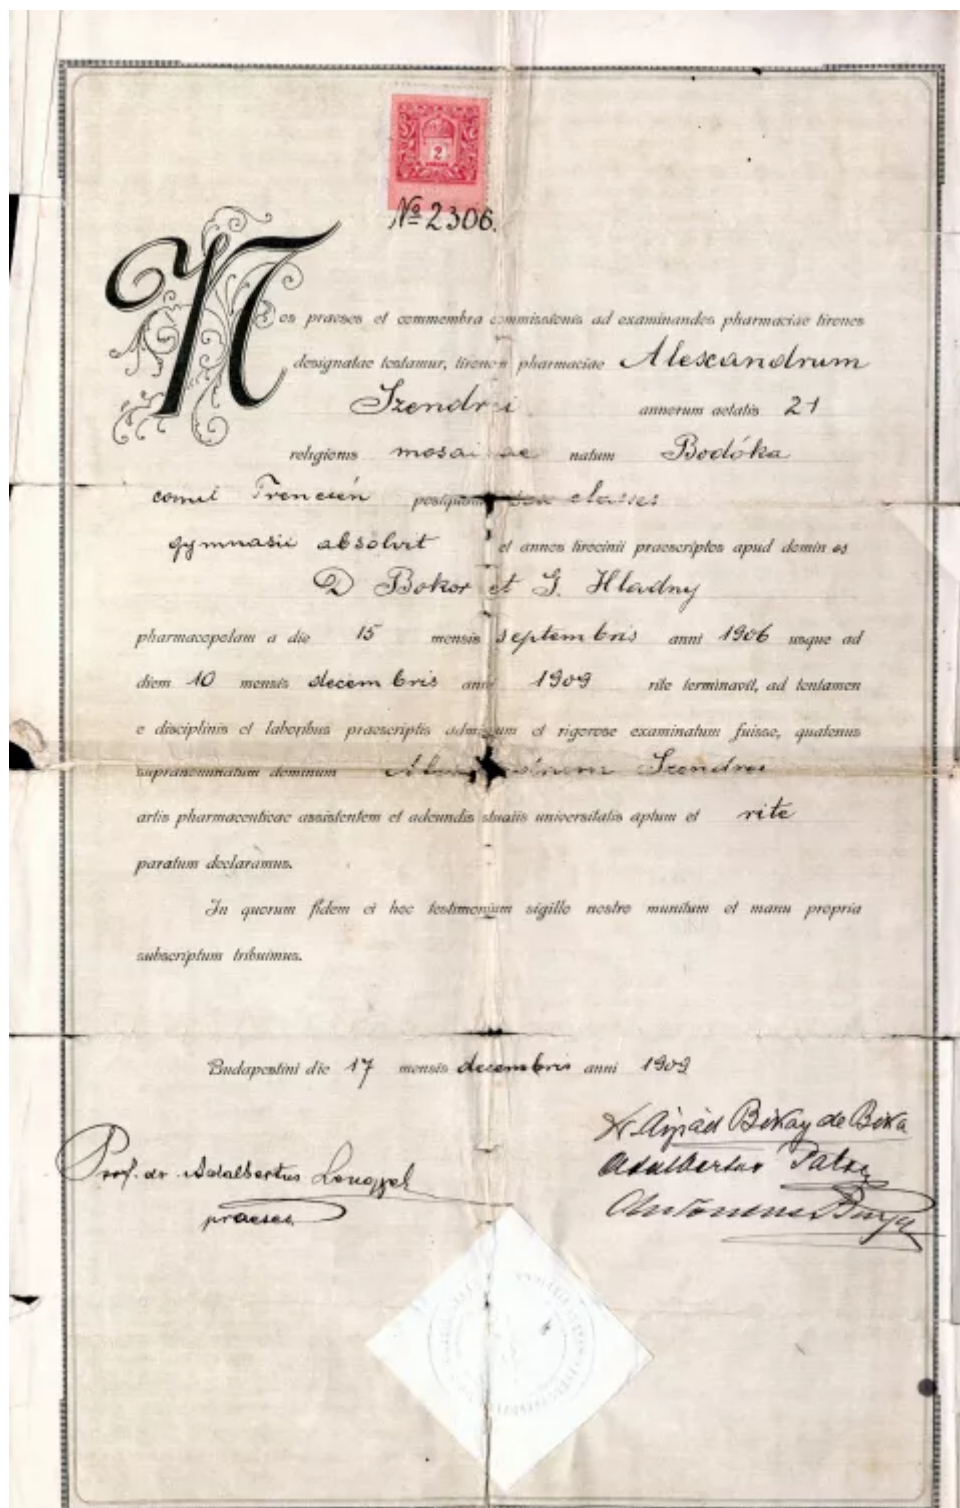 2
№ 2306.
Nos praeses et commembra commissionis ad examinandos pharmaciae tirones
designatae testamur, tironem pharmaciae Alexandrum
Szendrei annorum aetatis 21
religionis mosaicae natum Bodóka
comit Trencsén postquam sex classes
gymnasii absolvit et annos tirocinii praescriptos apud dominos
D Bokor et G. Hladny
pharmacopolam a die 15 mensis septembris anni 1906 usque ad
diem 10 mensis decembris anni 1909 rite terminavit, ad tentamen
e disciplinis et laboribus praescriptis admissum et rigorose examinatum fuisse, quatenus
supranominatum dominum Alexandrum Szendrei
artis pharmaceuticae assistentem et adeundis studiis universitatis aptum et rite
paratum declaramus.
In quorum fidem ei hoc testimonium sigillo nostro munitum et manu propria
subscriptum tribuimus.
Budapestini die 17 mensis decembris anni 1909
Dr. Árpád Bókay de Bóka
Prof. dr. Adalbertus Lengyel
Adalbertus
praeses
Antonius